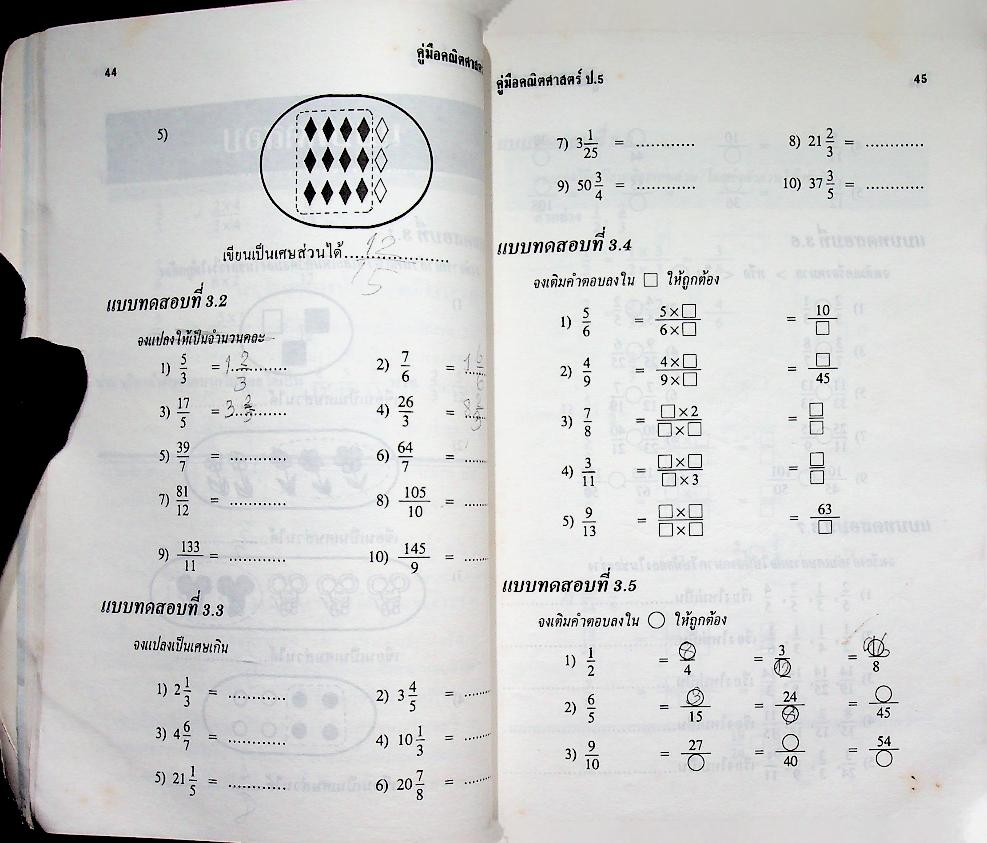 44
คู่มือคณิตศาสตร์
5)
เขียนเป็นเศษส่วนได้ 12/15
แบบทดสอบที่ 3.2
จงแปลงให้เป็นจำนวนคละ
1) 5/3 = 1 2/3 2) 7/6 = 1
3) 17/5 = 3 2) 26/3 = 8
5) 39/7 = ............ 6) 64/7 = ......
7) 81/12 = ............ 8) 105/10 = ......
9) 133/11 = ............ 10) 145/9 = ......
แบบทดสอบที่ 3.3
จงแปลงเป็นเศษเกิน
1) 2 1/3 = ............ 2) 3 4/5 = ......
3) 4 6/7 = ............ 4) 10 1/3 = ......
5) 21 1/5 = ............ 6) 20 7/8 = ......
คู่มือคณิตศาสตร์ ป.5
45
7) 3 1/25 = ............ 8) 21 2/3 = ............
9) 50 3/4 = ............ 10) 37 3/5 = ............
แบบทดสอบที่ 3.4
จงเติมคำตอบลงใน □ ให้ถูกต้อง
1) 5/6 = 5×□/6×□ = 10/□
2) 4/9 = 4×□/9×□ = □/45
3) 7/8 = □×2/□×□ = □/□
4) 3/11 = □×□/□×3 = □/□
5) 9/13 = □×□/□×□ = 63/□
แบบทดสอบที่ 3.5
จงเติมคำตอบลงใน ○ ให้ถูกต้อง
1) 1/2 = ○/4 = 3/○ = ○/8
2) 6/5 = ○/15 = 24/○ = ○/45
3) 9/10 = 27/○ = ○/40 = 54/○